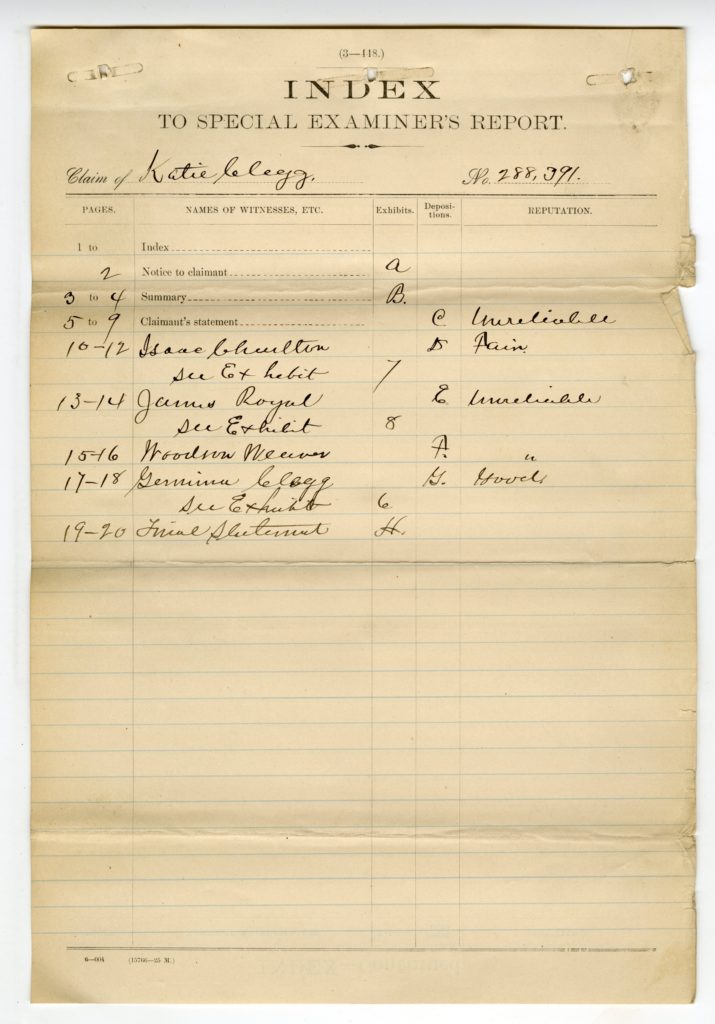 (3—448.)
INDEX
TO SPECIAL EXAMINER'S REPORT.
Claim of Katie Clegg, No. 288,391.
PAGES. NAMES OF WITNESSES, ETC. Exhibits. Deposi-tions. REPUTATION.
1 to Index
2 Notice to claimant a
3 to 4 Summary B.
5 to 9 Claimant's statement C Unreliable
10-12 Isaac D Fair.
see Exhibit 7
13-14 James Royal E Unreliable
see Exhibit 8
15-16 Woodson Weaver F. "
17-18 Gemima Clegg G. Good.
see Exhibit 6
19-20 Final Statement H.
6—004 (15766—25 M.)